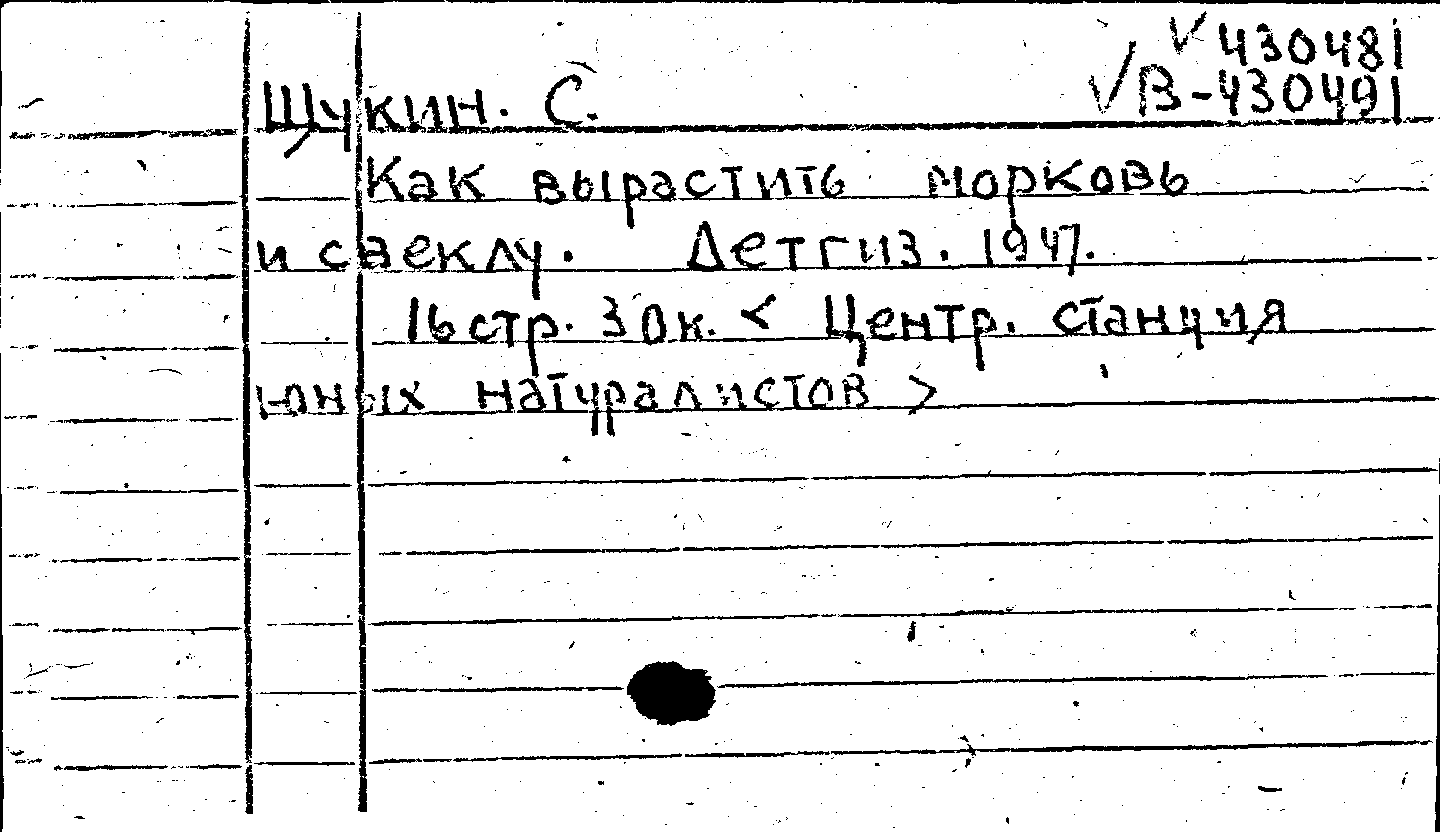 √ 430481
√B-430491
Щукин. С.
Как вырастить морковь
и свеклу. Детгиз. 1947.
16 стр. 30 к. < Центр. станция
юных натуралистов >